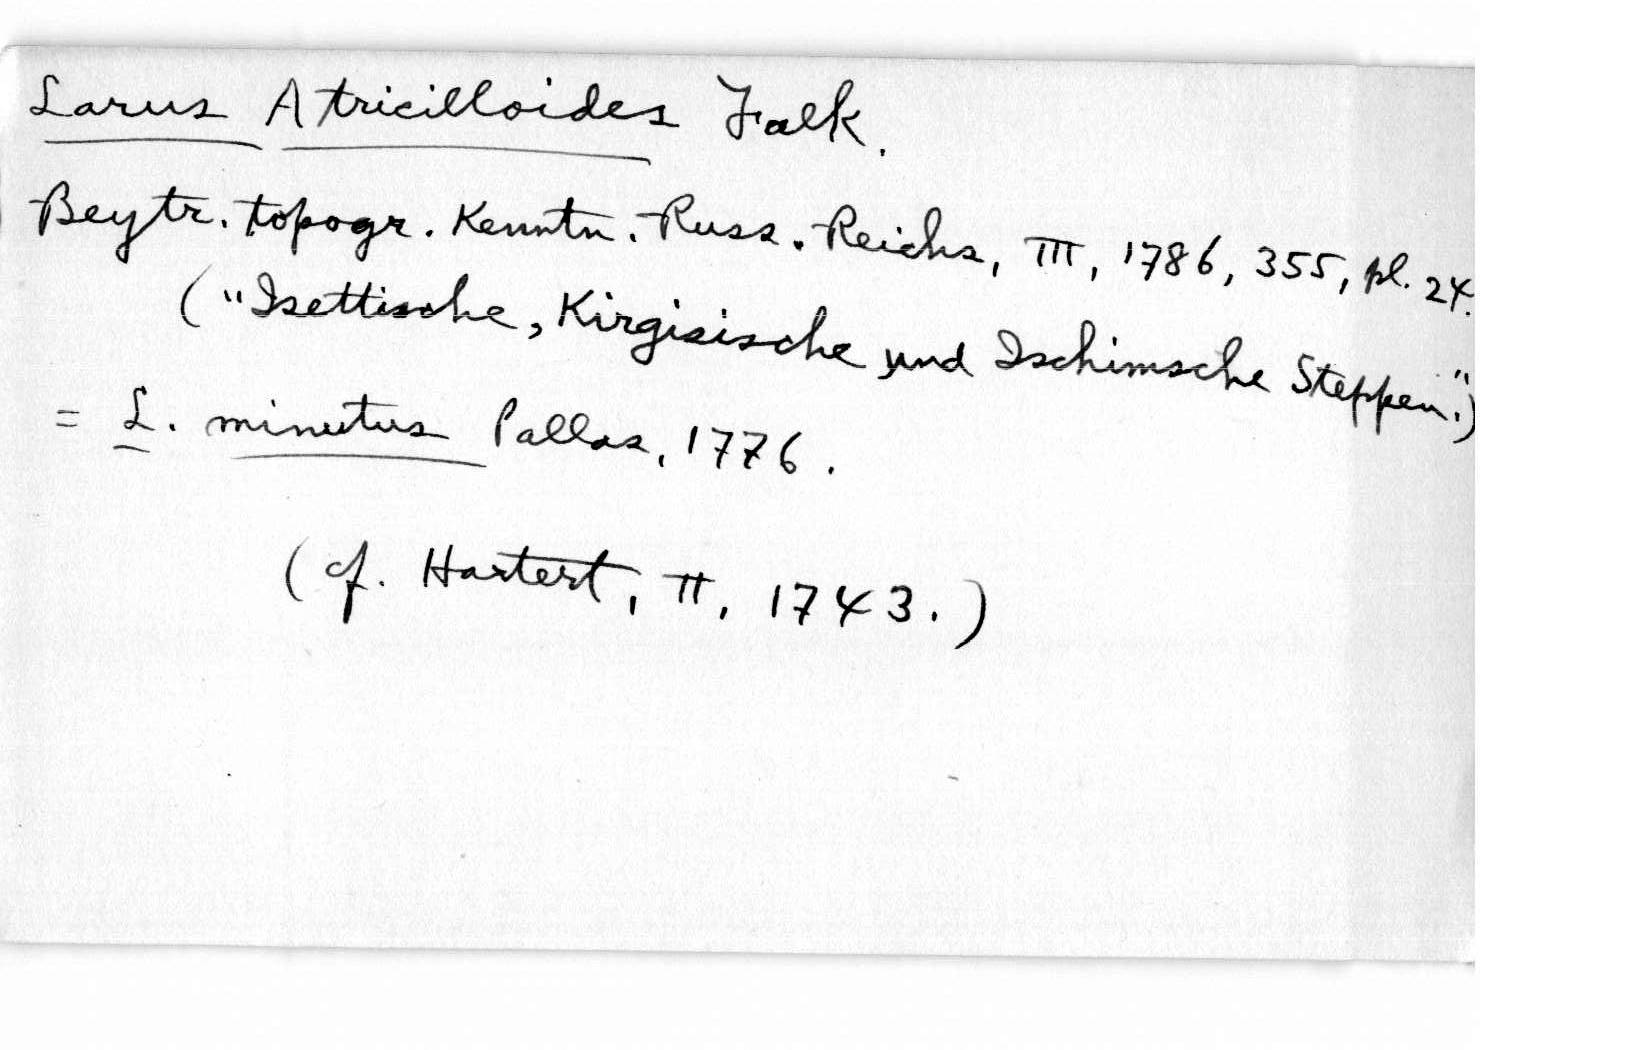 Larus Atricilloides Falk.
Beytr. topogr. Kenntn. Russ. Reichs, III, 1786, 355, pl. 24.
("Isettische, Kirgisische und Ischimsche Steppen".)
= L. minutus Pallas, 1776.
(cf. Hartert, II, 1743.)